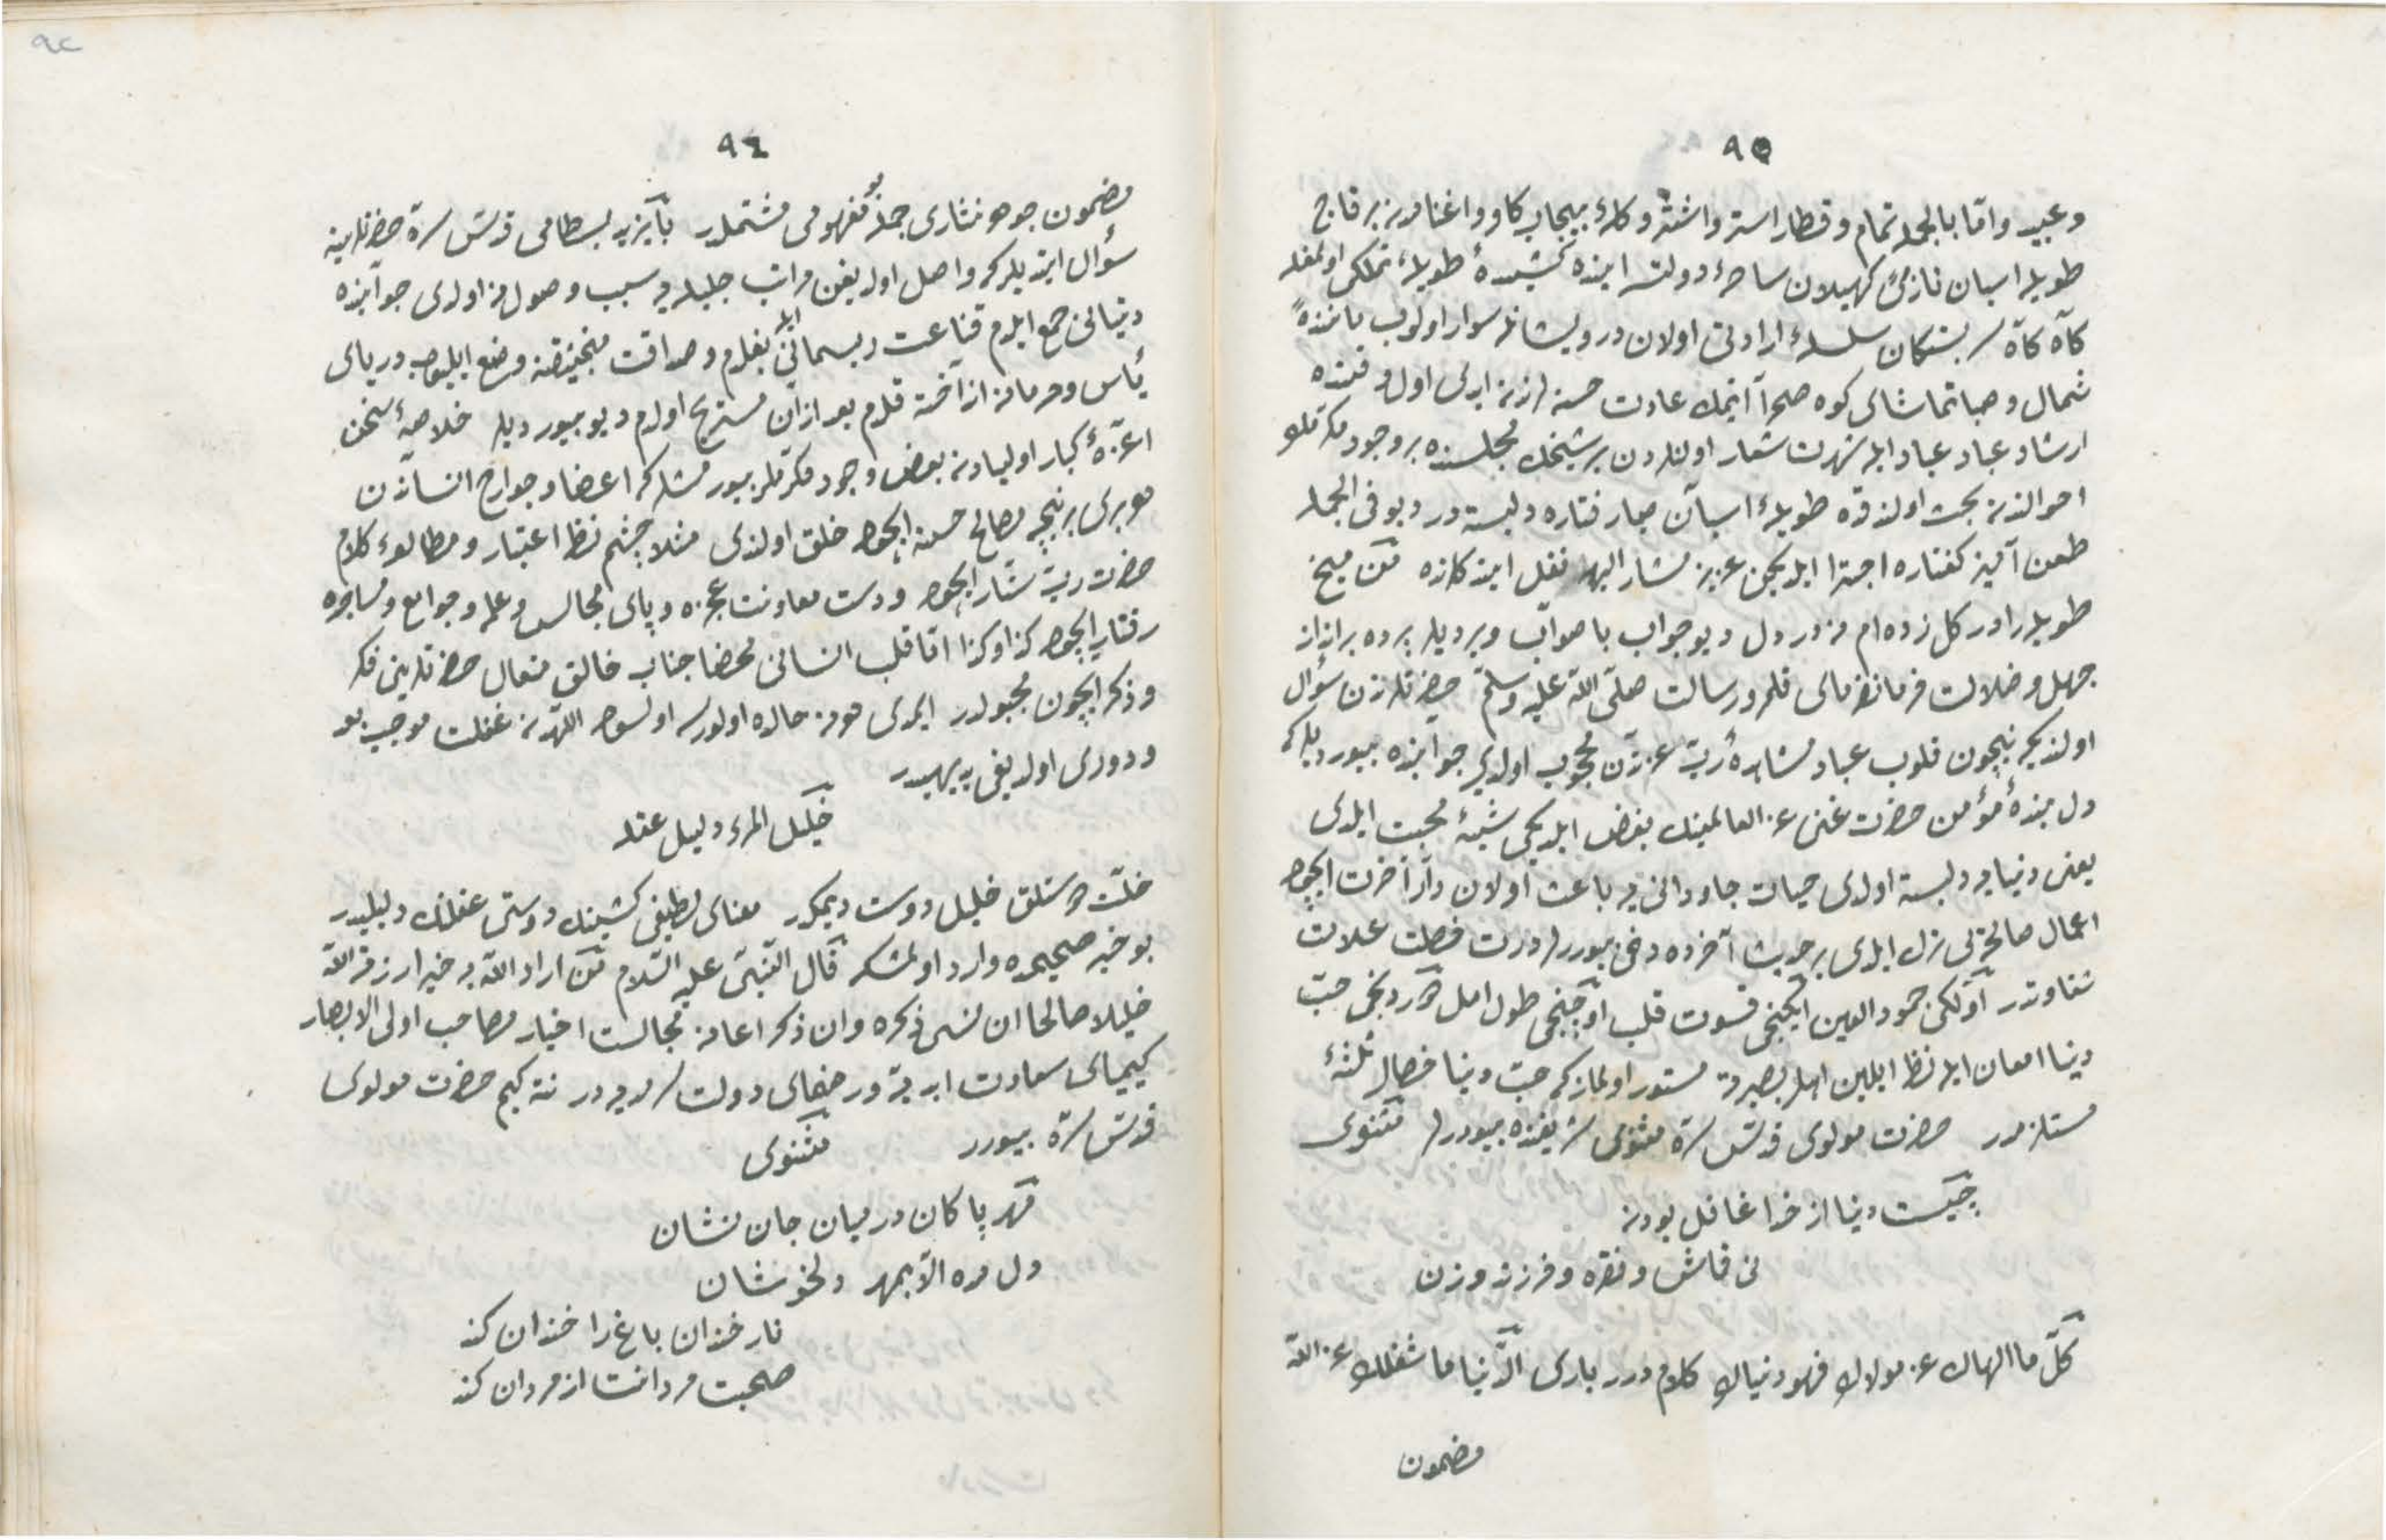 ٩٥
وعبيد واقا بالجمله تمام وقطار استر واشتر وكلهٔ بيحجاب كاو واغنامدن برقاج
طويله اسبان تازئ كهيلان ساحهٔ دولت ايذه كشيدهٔ طويلهٔ تملكى اولمغله
كاه كاه سربستكان سلسلهٔ ارادتى اولان درويشانله سوار اولوب مانندهٔ
شمال وصبا تماشاى كوه صحرا ايتمك عادت حسنه لرندن ايدى اول وقتده
ارشاد عباد عباد ايله شهرت شعار اولنلردن بر شيخك مجلسنده بر وجودك
احوالندن بحث اولندقده طويلهٔ اسبان صبا رفتاره دلبسته در ديو فى الجمله
طعن آميز كفتاره اجترا ايلديكن عزيز مشار اليه نقل ايتدكلرنده من ميخ
طويله را در كل زده ام نه در دل ديو جواب با صواب ويرديلر پرده برانداز
جهل وضلالت فرمانفرماى قلمرو رسالت صلّى اللّه عليه وسلّم حضرتلرندن سؤال
اولنديكه نيچون قلوب عباد مشاهدهٔ ربّ عزتدن محجوب اولدى جوابنده بيورديلر كه
دل بندهٔ مؤمن حضرت غنى عن العالمينك بغض ايلديكى شيئهٔ محبت ايلدى
يعنى دنيايه دلبسته اولدى حيات جاودانى يه باعث اولان دار آخرت ايچون
اعمال صالحه يى ترك ايلدى بر حديث آخرده دخى بيوررلر درت خصلت علامت
شقاوتدر اولكى جمود العين ايكنجى قسوت قلب اوچنجى طول امل دردنجى حبّ
دنيا امعان ايله نظر ايلين اهل بصيرته مستور اولماز كه حبّ دنيا خصال ثلثهٔ
مستلزمدر حضرت مولوى قدّس سرّه مثنوى شريفنده بيوررلر مثنوى
چيست دنيا از خدا غافل بودن
نى قماش ونقره وفرزند وزن
كلّ ما الهاك عن مولاك فهو دنياك كلام درر بارى الدّنيا ما شغلك عن اللّه
مضمون
٩٤
مضمون جوهر نثارى جمله بو مفهومى مشتملدر بايزيد بسطامى قدّس سرّه حضرتلرينه
سؤال ايتديلر كه واصل اولديغن مراتب جليله يه سبب وصول نه اولدى جوابنده
دنيالى جمع ايلدم قناعت ريسمانى ايله بغلدم وصداقت منجنيقنه وضع ايليوب درياى
يأس وحرمانه انداخته قلدم بعد ازان مستريح اولدم ديو بيورديلر خلاصهٔ سخن
اعزّهٔ كبار اوليادن بعض وجود مكرملر بيورمشلر كه اعضا وجوارح انساندن
هر برى برنيچه مصالح حسنه ايچون خلق اولندى مثلا چشم نظر اعتبار ومطالعهٔ كلام
حضرت ربّ ستّار ايچون ودست معاونت عجزه وپاى مجالس وعلم وجوامع ومساجده
رفتار ايچون كذا وكذا امّا قلب انسانى محضا جناب خالق متعال حضرتلرينى فكر
وذكر ايچون مجبولدر ايمدى هرنه حالده اولورسه اولسون اللّهدن غفلت موجب بعد
ودورى اولديغى بديهيدر
خليل المرء دليل عقله
خلّت دوستلق خليل دوست ديمكدر معناى لطيفى كشينك دوستى عقلنك دليليدر
بو خبر صحيحده وارد اولمشدر قال النّبىّ عليه السّلام من اراد اللّه به خيرا رزقه اللّه
خليلا صالحا ان نسى ذكره وان ذكر اعانه مجالست اخيار مصاحب اولى الابصار
كيمياى سعادت ابديه در رضاى دولت سرمديه در نته كيم حضرت مولوى
قدّس سرّه بيورر مثنوى
مهر پاكان در ميان جان نشان
دل مده الّا بمهر دلخوشان
نار خندان باغ را خندان كند
صحبت مردانت از مردان كند